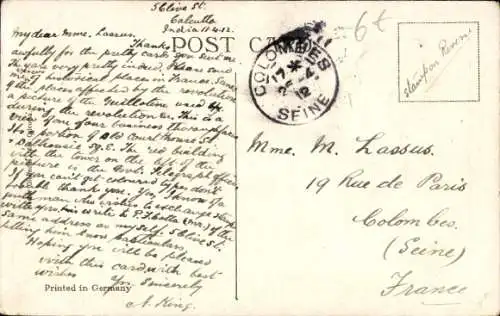 5 Clive St.
Calcutta
India 11.4.12.
My dear Mme. Lassus.
Thanks
awfully for the pretty cards you sent me
They are very pretty indeed. Please send
me of historical places in France. Some
of the places affected by the revolution
a picture of the Guillotine used
during the revolution etc. This is a
view of one of our business thoroughfares
It is a portion of Old Court House St
& Dalhousie Sq. E. The red building
with the tower on the left of the
picture is the Govt. Telegraph office
If you can't get coloured types don't
trouble thank you. Yes I know a
gentleman who wishes to exchange
with you, his write to P. (Mr.) of the
same address as my self. 5 Clive St.
letting him know particulars
Hoping you will be pleased
with this card with best
wishes
Yrs. Sincerely
A. King.
Printed in Germany
POST CARD
COLOMBES
17 *
4
12
SEINE
6t
Stamp on Reverse
Mme. M. Lassus.
19 Rue de Paris
Colombes.
(Seine)
France